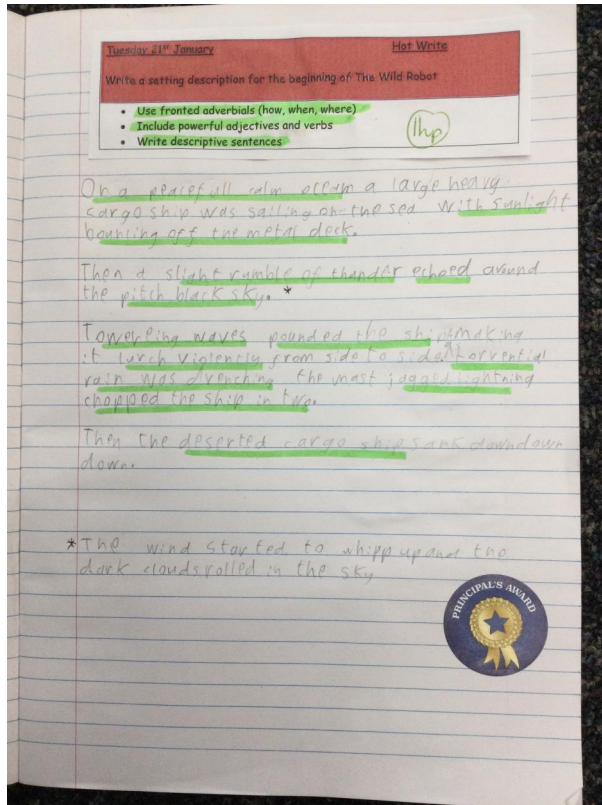 Tuesday 21st January Hot Write
Write a setting description for the beginning of The Wild Robot
• Use fronted adverbials (how, when, where)
• Include powerful adjectives and verbs
• Write descriptive sentences
1hp
On a peacefull calm ocean a large heavy
cargo ship was sailing on the sea with sunlight
bouncing off the metal deck.
Then a slight rumble of thander echoed around
the pitch black sky. *
Towering waves pounded the ship making
it lurch violently from side to side torrential
rain was drenching the mast jagged lightning
chopped the ship in two.
Then the deserted cargo ship sank down down
down.
* The wind started to whipp up and the
dark clouds rolled in the sky
PRINCIPAL'S AWARD